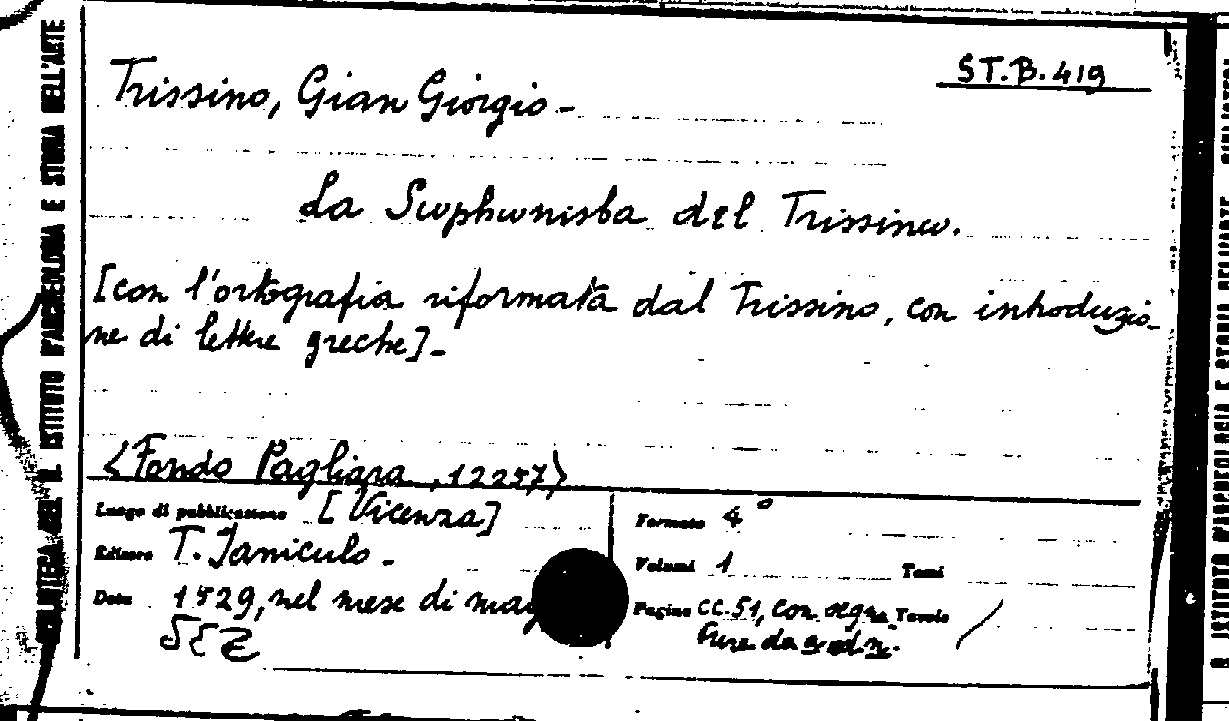 ST.B.419
Trissino, Gian Giorgio -
La Sωphωnisba del Trissinω.
[con l'ortografia riformata dal Trissino, con introduzio-
ne di lettere greche]-
<Fondo Pagliara, 12257>
Luogo di pubblicazione [Vicenza]
Formato 4°
Editore T. Janiculo -
Volumi 1 Tomi
Data 1529, nel mese di
Pagine CC.51, con segna Tavole /
ture da a
BIBLIOTECA DEL R. ISTITUTO D'ARCHEOLOGIA E STORIA DELL'ARTE
R. ISTITUTO D'ARCHEOLOGIA E STORIA DELL'ARTE